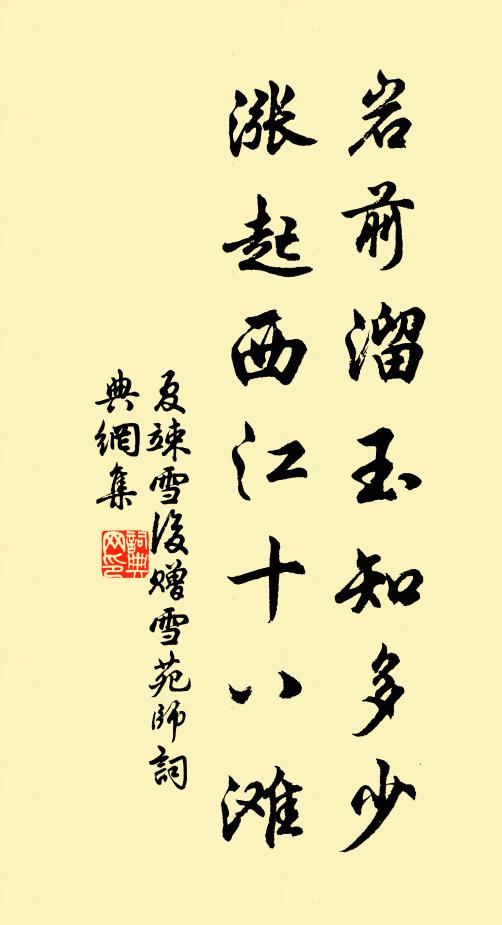 岩前溜玉知多少
漲起西江十八滩
夏竦雪後赠雪苑師詞
典網集
詞典网印